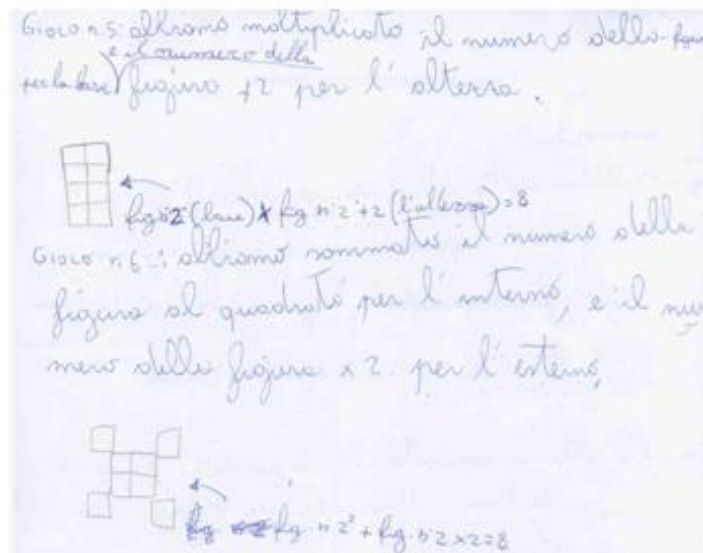 Gioco n.5: abbiamo moltiplicato il numero della figura
e il numero della
per la base figura +2 per l'altezza.
fig n 2 (base) x fig n 2 + 2 (l'altezza) = 8
Gioco n.6: abbiamo sommato il numero della
figura al quadrato per l'interno, e il nu
mero della figura x 2 per l'esterno,
fig. n 2² + fig. n 2 x 2 = 8